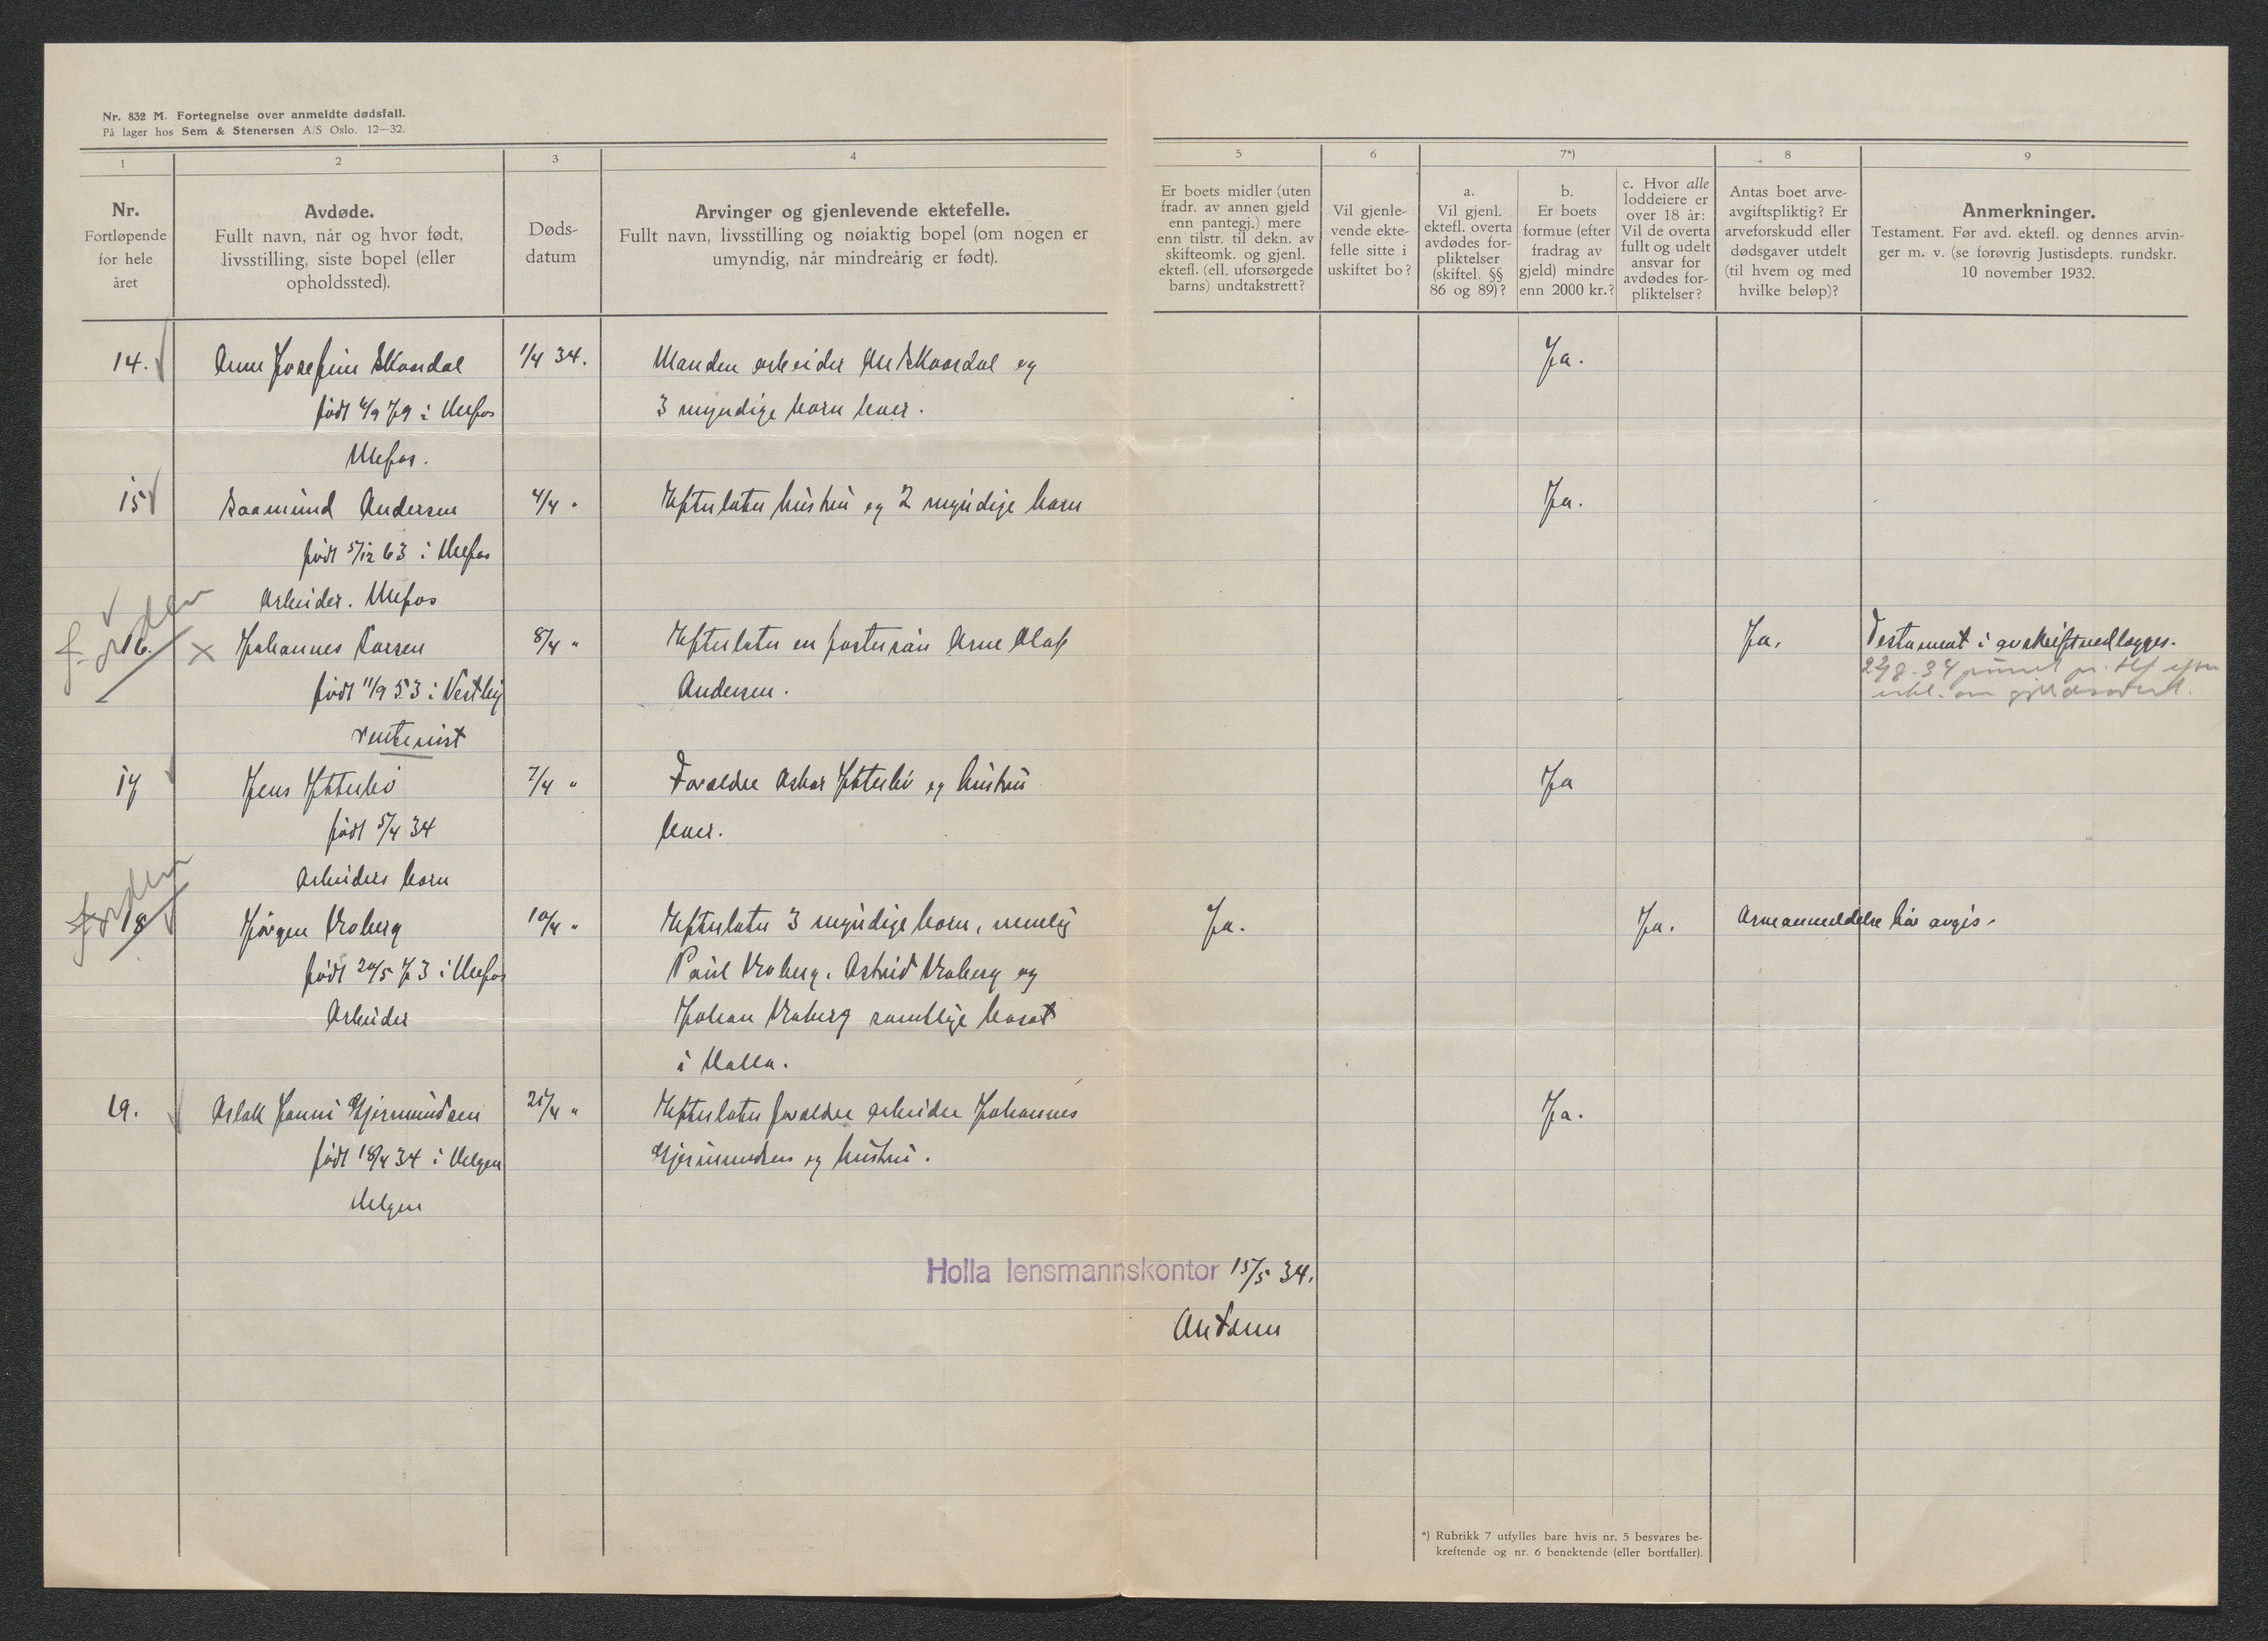 Nr. 832 M. Fortegnelse over anmeldte dødsfall.
På lager hos Sem & Stenersen A/S Oslo. 12—32.
1
2
3
4
5
6
7*)
8
9
Nr.
Fortløpende
for hele
året
Avdøde.
Fullt navn, når og hvor født,
livsstilling, siste bopel (eller
opholdssted).
Døds-
datum
Arvinger og gjenlevende ektefelle.
Fullt navn, livsstilling og nøiaktig bopel (om nogen er
umyndig, når mindreårig er født).
Er boets midler (uten
fradr. av annen gjeld
enn pantegj.) mere
enn tilstr. til dekn. av
skifteomk. og gjenl.
ektefl. (ell. uforsørgede
barns) undtakstrett?
Vil gjenle-
vende ekte-
felle sitte i
uskiftet bo?
a.
Vil gjenl.
ektefl. overta
avdødes for-
pliktelser
(skiftel. §§
86 og 89)?
b.
Er boets
formue (efter
fradrag av
gjeld) mindre
enn 2000 kr.?
c. Hvor alle
loddeiere er
over 18 år:
Vil de overta
fullt og udelt
ansvar for
avdødes for-
pliktelser?
Antas boet arve-
avgiftspliktig? Er
arveforskudd eller
dødsgaver utdelt
(til hvem og med
hvilke beløp)?
Anmerkninger.
Testament. Før avd. ektefl. og dennes arvin-
ger m. v. (se forøvrig Justisdepts. rundskr.
10 november 1932.
14. Anne Josefine Skaardal 1/4 34. Manden arbeider Ole Skaardal og Ja.
født 4/9 79 i Ulefos 3 myndige born lever.
Ulefos.
15 Aamund Andersen 4/4 " Efterlater hustru og 2 myndige born Ja.
født 5/12 63 i Ulefos
Arbeider. Ulefos
16. x Johannes Larsen 8/4 " Efterlater en fostersøn Arne Olaf Ja. Testament i avskrift vedlegges.
født 11/9 53 i Vestby Andersen.
rentenist
17 Jens Ytterbø 7/4 " Foreldre Oskar Ytterbø og hustru Ja
født 5/4 34 lever.
Arbeiders born
18 Jørgen Vraberg 10/4 " Efterlater 3 myndige born, nemlig Ja. Ja. Arveanmeldelse bør avgis.
født 20/5 73 i Ulefos Paul Vraberg, Astrid Vraberg og
Arbeider Johan Vraberg samtlige bosat
i Holla.
19. Aslak Janni Gjermundsen 21/4 " Efterlater foreldre arbeider Johannes Ja.
født 18/4 34 i Helgen Gjermundsen og hustru.
Helgen
Holla lensmannskontor 15/5 34.
*) Rubrikk 7 utfylles bare hvis nr. 5 besvares be-
kreftende og nr. 6 benektende (eller bortfaller).